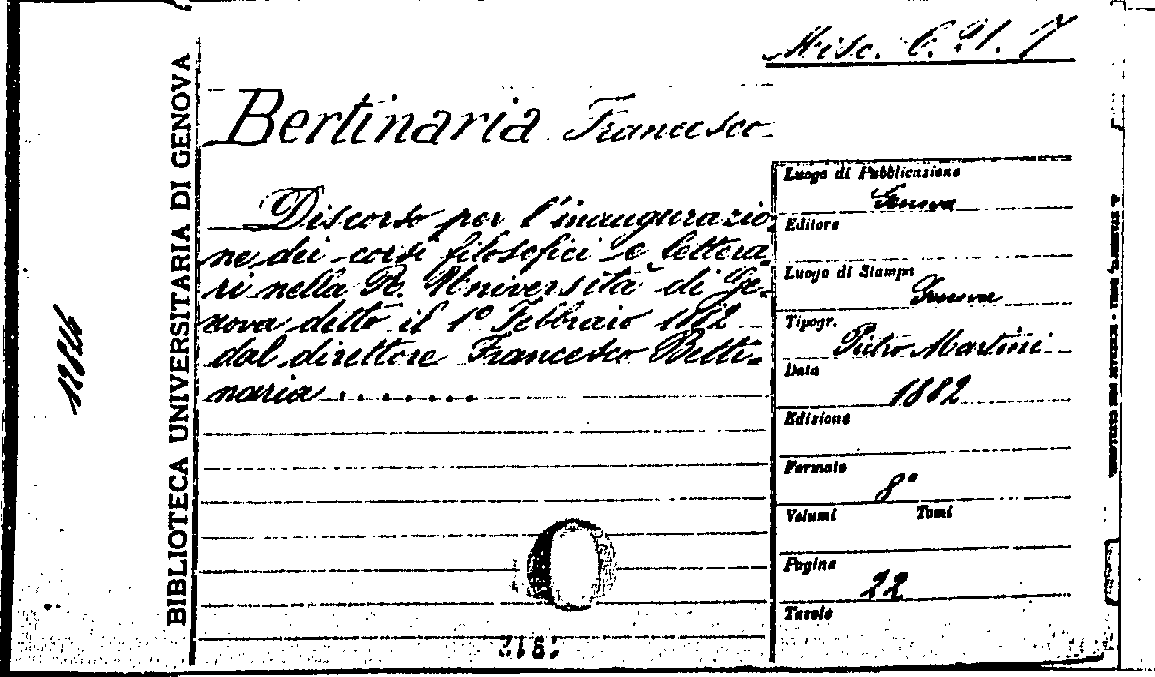 Misc. C. 21. 7
BIBLIOTECA UNIVERSITARIA DI GENOVA
Bertinaria Francesco
Discorso per l'inaugurazio-
ne dei corsi filosofici e lettera-
ri nella R. Università di Ge-
nova detto il 1° Febbraio 1882
dal direttore Francesco Berti-
naria ........
Luogo di Pubblicazione
Genova
Editore
Luogo di Stampa
Genova
Tipogr.
Pietro Martini
Data
1882
Edizione
Formato
8°
Volumi Tomi
Pagine
22
Tavole